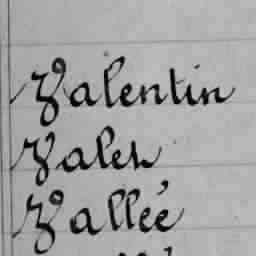 Valentin
Valeh
Vallée